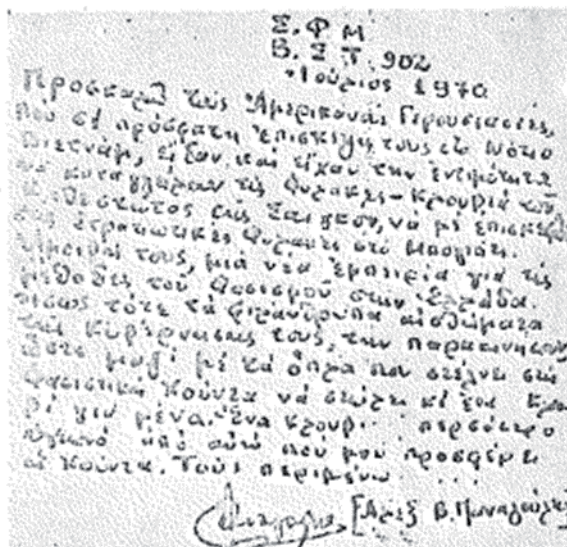 Σ. Φ. Μ
Β. Σ. Τ. 902
Ἰούλιος 1970
Προσκαλῶ τούς Ἀμερικανούς Γερουσιαστές,
πού σέ πρόσφατη ἐπίσκεψή τους στό Νότιο
Βιετνάμ, εἶδαν καί εἶχαν τήν ἐντιμότητα
νά καταγγείλουν τίς φυλακές-κλουβιά τοῦ
καθεστῶτος τῆς Σαϊγκόν, νά μέ ἐπισκεφθοῦν
στίς στρατιωτικές φυλακές στό Μπογιάτι.
μιά νέα ἐμπειρία γιά τίς
μεθόδες τοῦ φασισμοῦ στήν Ἑλλάδα.
ἴσως τότε τά φιλάνθρωπα αἰσθήματα
τῆς κυβέρνησής τους, τήν παρακινήσουν
ὥστε μαζί μέ τά ὅπλα πού στέλνει στή
φασιστική Χούντα νά στείλει κι ἕνα κλου-
βί γιά μένα. Ἕνα κλουβί περσότερο
ἀπό αὐτό πού μοῦ προσφέρει
ἡ Χούντα. Τούς περιμένω...
[Ἀλεξ. Β. Παναγούλης]